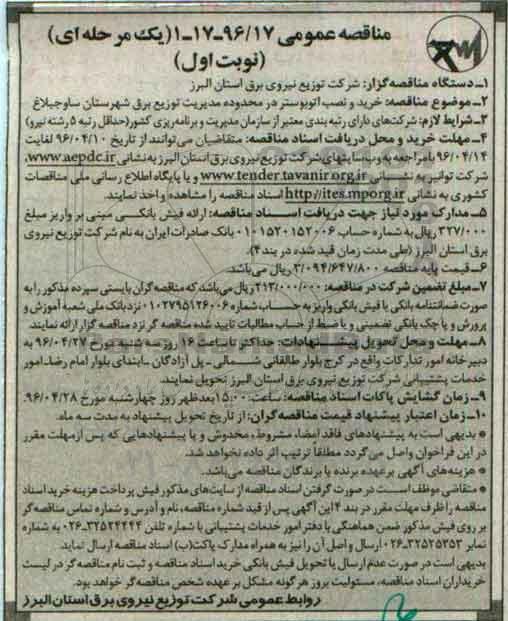 مناقصه عمومی ۹۶/۱۷-۱۷-۱ (یک مرحله ای)
(نوبت اول)
۱ـ دستگاه مناقصه‌گزار: شرکت توزیع نیروی برق استان البرز
۲ـ موضوع مناقصه: خرید و نصب اتوبوستر در محدوده مدیریت توزیع برق شهرستان ساوجبلاغ
۳ـ شرایط لازم: شرکت‌های دارای رتبه بندی معتبر از سازمان مدیریت و برنامه‌ریزی کشور (حداقل رتبه ۵ رشته نیرو)
۴ـ مهلت خرید و محل دریافت اسناد مناقصه: متقاضیان می‌توانند از تاریخ ۹۶/۰۴/۱۰ لغایت
۹۶/۰۴/۱۴ با مراجعه به وب سایتهای شرکت توزیع نیروی برق استان البرز به نشانی www.aepdc.ir،
شرکت توانیر به نشانی www.tender.tavanir.org.ir و یا پایگاه اطلاع رسانی ملی مناقصات
کشوری به نشانی http://iets.mporg.ir اسناد مناقصه را مشاهده و اخذ نمایند.
۵ـ مدارک مورد نیاز جهت دریافت اسناد مناقصه: ارائه فیش بانکی مبنی بر واریز مبلغ
۳۲۷/۰۰۰ ریال به شماره حساب ۰۱۰۱۵۲۰۱۵۲۰۰۶ بانک صادرات ایران به نام شرکت توزیع نیروی
برق استان البرز (طی مدت زمان قید شده در بند ۴).
۶ـ قیمت پایه مناقصه ۳/۰۹۴/۶۴۷/۸۰۰ ریال می‌باشد.
۷ـ مبلغ تضمین شرکت در مناقصه: ۲۱۳/۰۰۰/۰۰۰ ریال می‌باشد که مناقصه گران بایستی سپرده مذکور را به
صورت ضمانتنامه بانکی یا فیش بانکی واریز به حساب شماره ۰۱۰۲۷۹۵۱۲۶۰۰۶ نزد بانک ملی شعبه آموزش و
پرورش و یا چک بانکی تضمینی و یا ضبط از حساب مطالبات تایید شده مناقصه گر نزد مناقصه گزار ارائه نمایند.
۸ـ مهلت و محل تحویل پیشنهادات: حداکثر تا ساعت ۱۶ روز سه شنبه مورخ ۹۶/۰۴/۲۷ به
دبیرخانه امور تدارکات واقع در کرج بلوار طالقانی شمالی ـ پل آزادگان ـ ابتدای بلوار امام رضا ـ امور
خدمات پشتیبانی شرکت توزیع نیروی برق استان البرز تحویل نمایند.
۹ـ زمان گشایش پاکات اسناد مناقصه: ساعت ۱۵:۰۰ بعدظهر روز چهارشنبه مورخ ۹۶/۰۴/۲۸.
۱۰ـ زمان اعتبار پیشنهاد قیمت مناقصه‌گران: از تاریخ تحویل پیشنهاد به مدت سه ماه.
* بدیهی است به پیشنهادهای فاقد امضاء مشروط، مخدوش و یا پیشنهادهایی که پس از مهلت مقرر
در این فراخوان واصل می‌گردد مطلقاً ترتیب اثر داده نخواهد شد.
* هزینه‌های آگهی بر عهده برنده یا برندگان مناقصه می‌باشد.
* متقاضی موظف است در صورت گرفتن اسناد مناقصه از سایت‌های مذکور فیش پرداخت هزینه خرید اسناد
مناقصه را ظرف مهلت مقرر در بند ۴ این آگهی پس از قید شماره مناقصه، نام و آدرس و شماره تماس مناقصه گر
بر روی فیش مذکور ضمن هماهنگی با دفتر امور خدمات پشتیبانی با شماره تلفن ۳۲۵۲۴۴۴۴-۰۲۶ به شماره
نمابر ۳۲۵۲۵۳۵۳-۰۲۶ ارسال و اصل آن را نیز به همراه مدارک پاکت (ب) اسناد مناقصه ارسال نماید.
بدیهی است در صورت عدم ارسال یا تحویل فیش بانکی خرید اسناد مناقصه و ثبت نام مناقصه گر در لیست
خریداران اسناد مناقصه، مسئولیت بروز هرگونه مشکل بر عهده شخص مناقصه گر خواهد بود.
روابط عمومی شرکت توزیع نیروی برق استان البرز